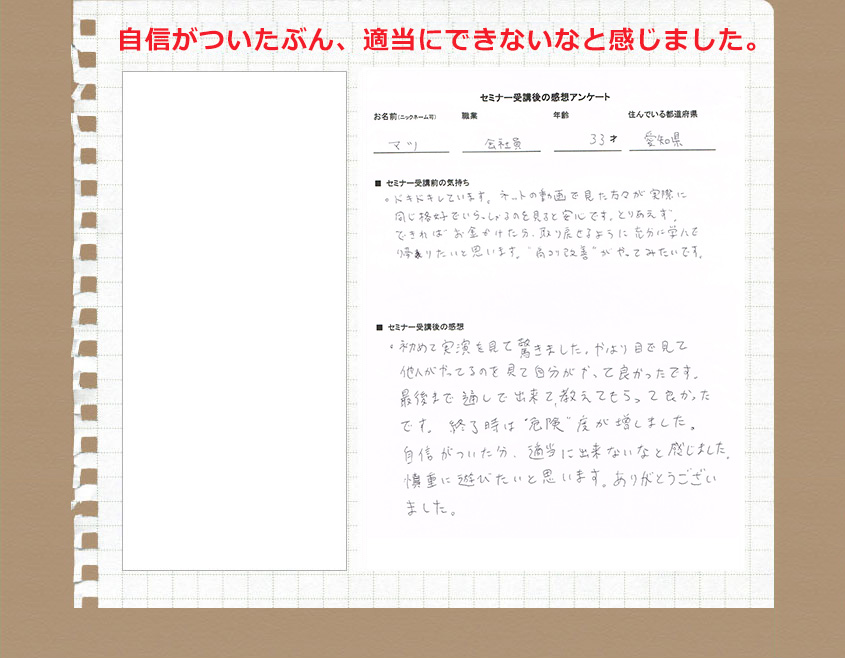 自信がついたぶん、適当にできないなと感じました。
セミナー受講後の感想アンケート
お名前(ニックネーム可) 職業 年齢 住んでいる都道府県
マツ 会社員 33才 愛知県
■ セミナー受講前の気持ち
。ドキドキしています。ネットの動画で見た方々が実際に
同じ格好でいらっしゃるのを見ると安心です。とりあえず、
できれば お金かけた分、取り戻せるように充分に学んで
帰りたいと思います。"肩コリ改善"がやってみたいです。
■ セミナー受講後の感想
。初めて実演を見て驚きました。やはり目で見て
他人がやってるのを見て自分がやって良かったです。
最後まで通しで出来て、教えてもらって良かった
です。終了時は"危険"度が増しました。
自信がついた分、適当に出来ないなと感じました。
慎重に遊びたいと思います。ありがとうござい
ました。